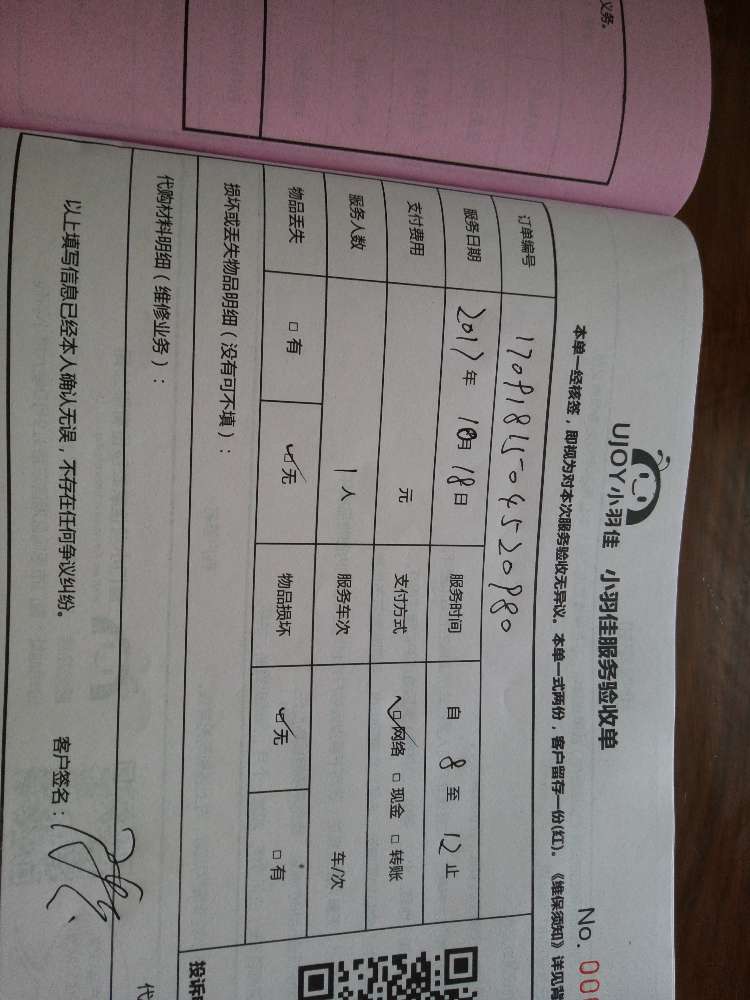 义务。
UJOY小羽佳 小羽佳服务验收单
No. 00
本单一经核签，即视为对本次服务验收无异议。本单一式两份，客户留存一份(红)。《维保须知》详见背
订单编号 1709181504520980
服务日期 2017年 10月 18日 服务时间 自 8 至 12 止
支付费用 元 支付方式 ☑网络 □现金 □转账
服务人数 1人 服务车次 车/次
物品丢失 □有 ☑无 物品损坏 ☑无 □有
损坏或丢失物品明细（没有可不填）：
代购材料明细（维修业务）：
以上填写信息已经本人确认无误，不存在任何争议纠纷。 客户签名：
投诉
代